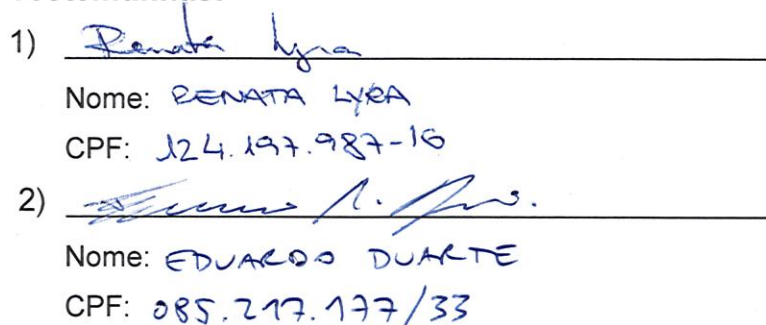 1) Renata Lyra
Nome: RENATA LYRA
CPF: 124.197.987-16
2)
Nome: EDUARDO DUARTE
CPF: 085.217.177/33